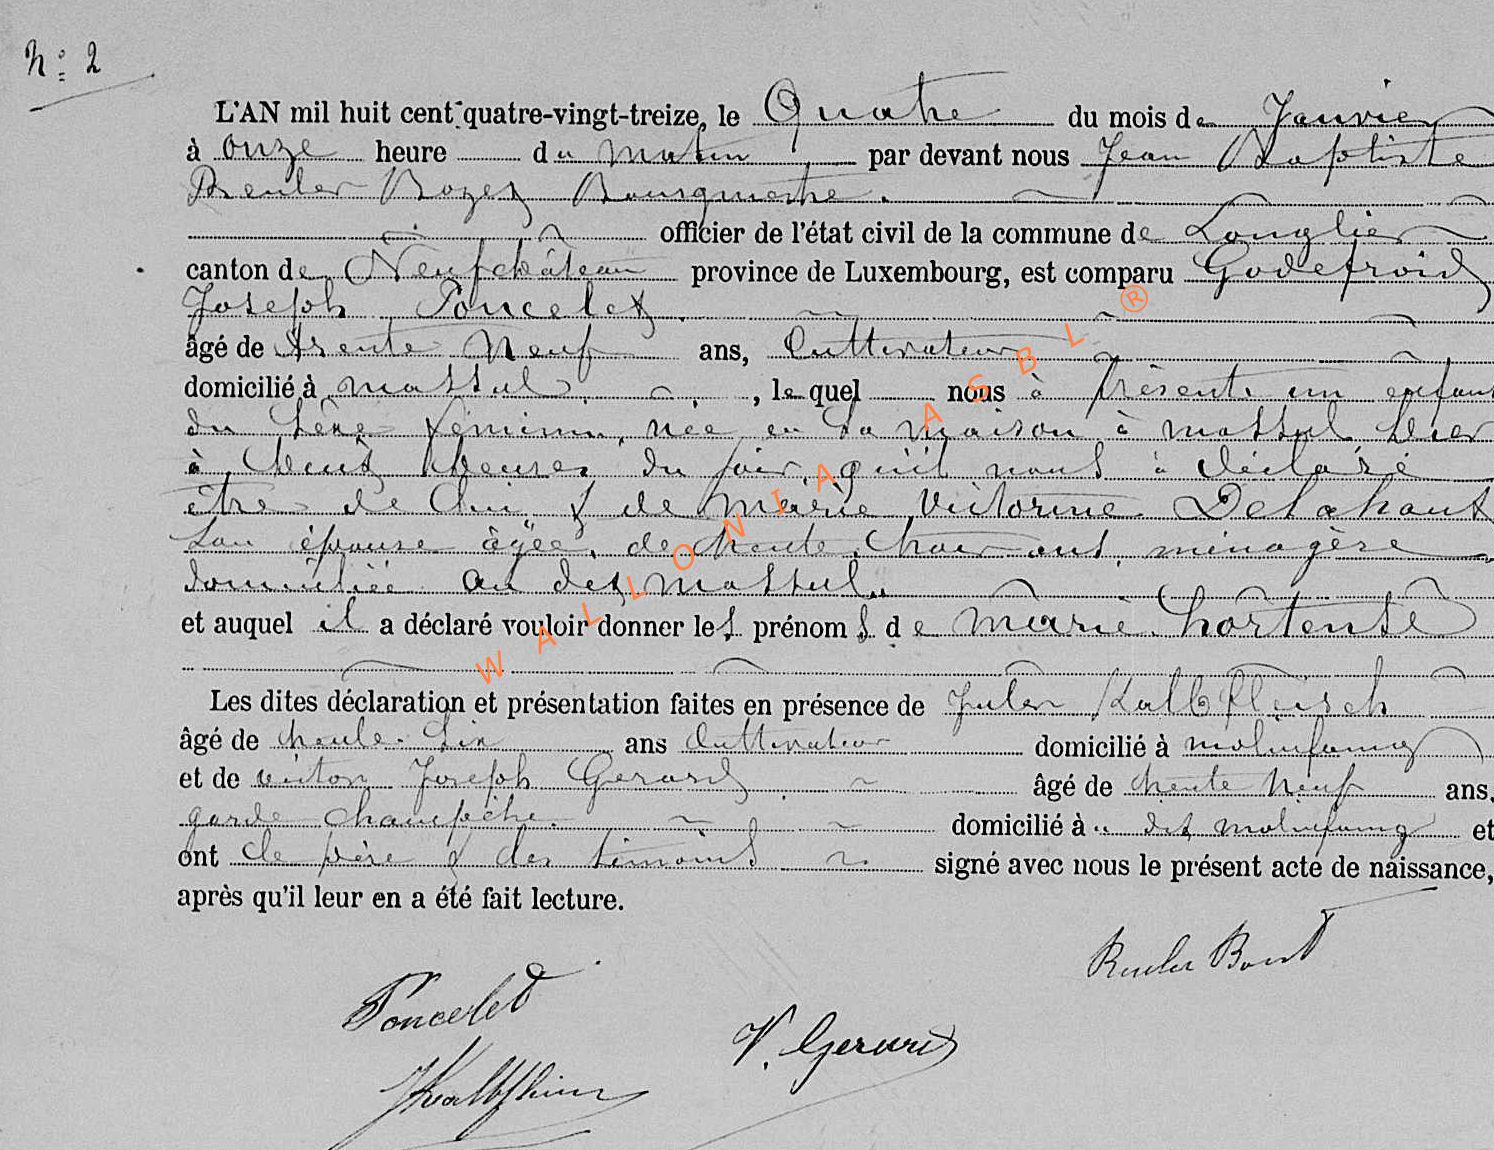 N: 2
L'AN mil huit cent quatre-vingt-treize, le Quatre du mois de Janvier
à onze heure du matin par devant nous Jean Baptiste
Reuler Bourgmestre.
officier de l'état civil de la commune de Longlier
canton de Neufchâteau province de Luxembourg, est comparu Godefroid
Joseph Poncelet
âgé de trente neuf ans, Cultivateur
domicilié à massul, le quel nous à Présenté un enfant
du sèxe féminin, née en sa maison à massul hier
à deux heures du soir, qu'il nous à déclaré
être de lui & de Marie Victorine Delahaut
son épouse âgée, de trente ans, ménagère
domiciliée au dit massul.
et auquel il a déclaré vouloir donner les prénoms de Marie Hortense
Les dites déclaration et présentation faites en présence de Jules Kalbfleisch
âgé de trente-six ans Cultivateur domicilié à molinfaing
et de victor Joseph Gerard âgé de trente neuf ans,
garde champêtre. domicilié à dit molinfaing et
ont le père & les témoins signé avec nous le présent acte de naissance,
après qu'il leur en a été fait lecture.
Poncelet
V. Gerard
WALLONIA ASBL ®